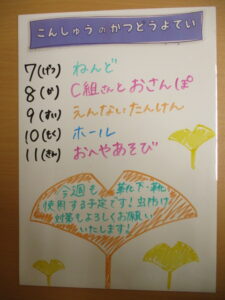 こんしゅうのかつどうよてい
7(げつ) ねんど
8(か) C組さんとおさんぽ
9(すい) えんないたんけん
10(もく) ホール
11(きん) おへやあそび
今週も 靴下・靴
使用する予定です!虫除け
対策もよろしくお願い
いたします!